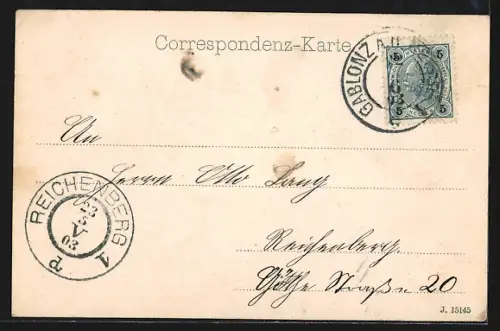 Correspondenz-Karte
GABLONZ A.N.
5 5
5 5
An
Herrn Otto Lang
Reichenberg.
Göthe Straße 20
REICHENBERG 1
23
5
V
03
P
J. 15145